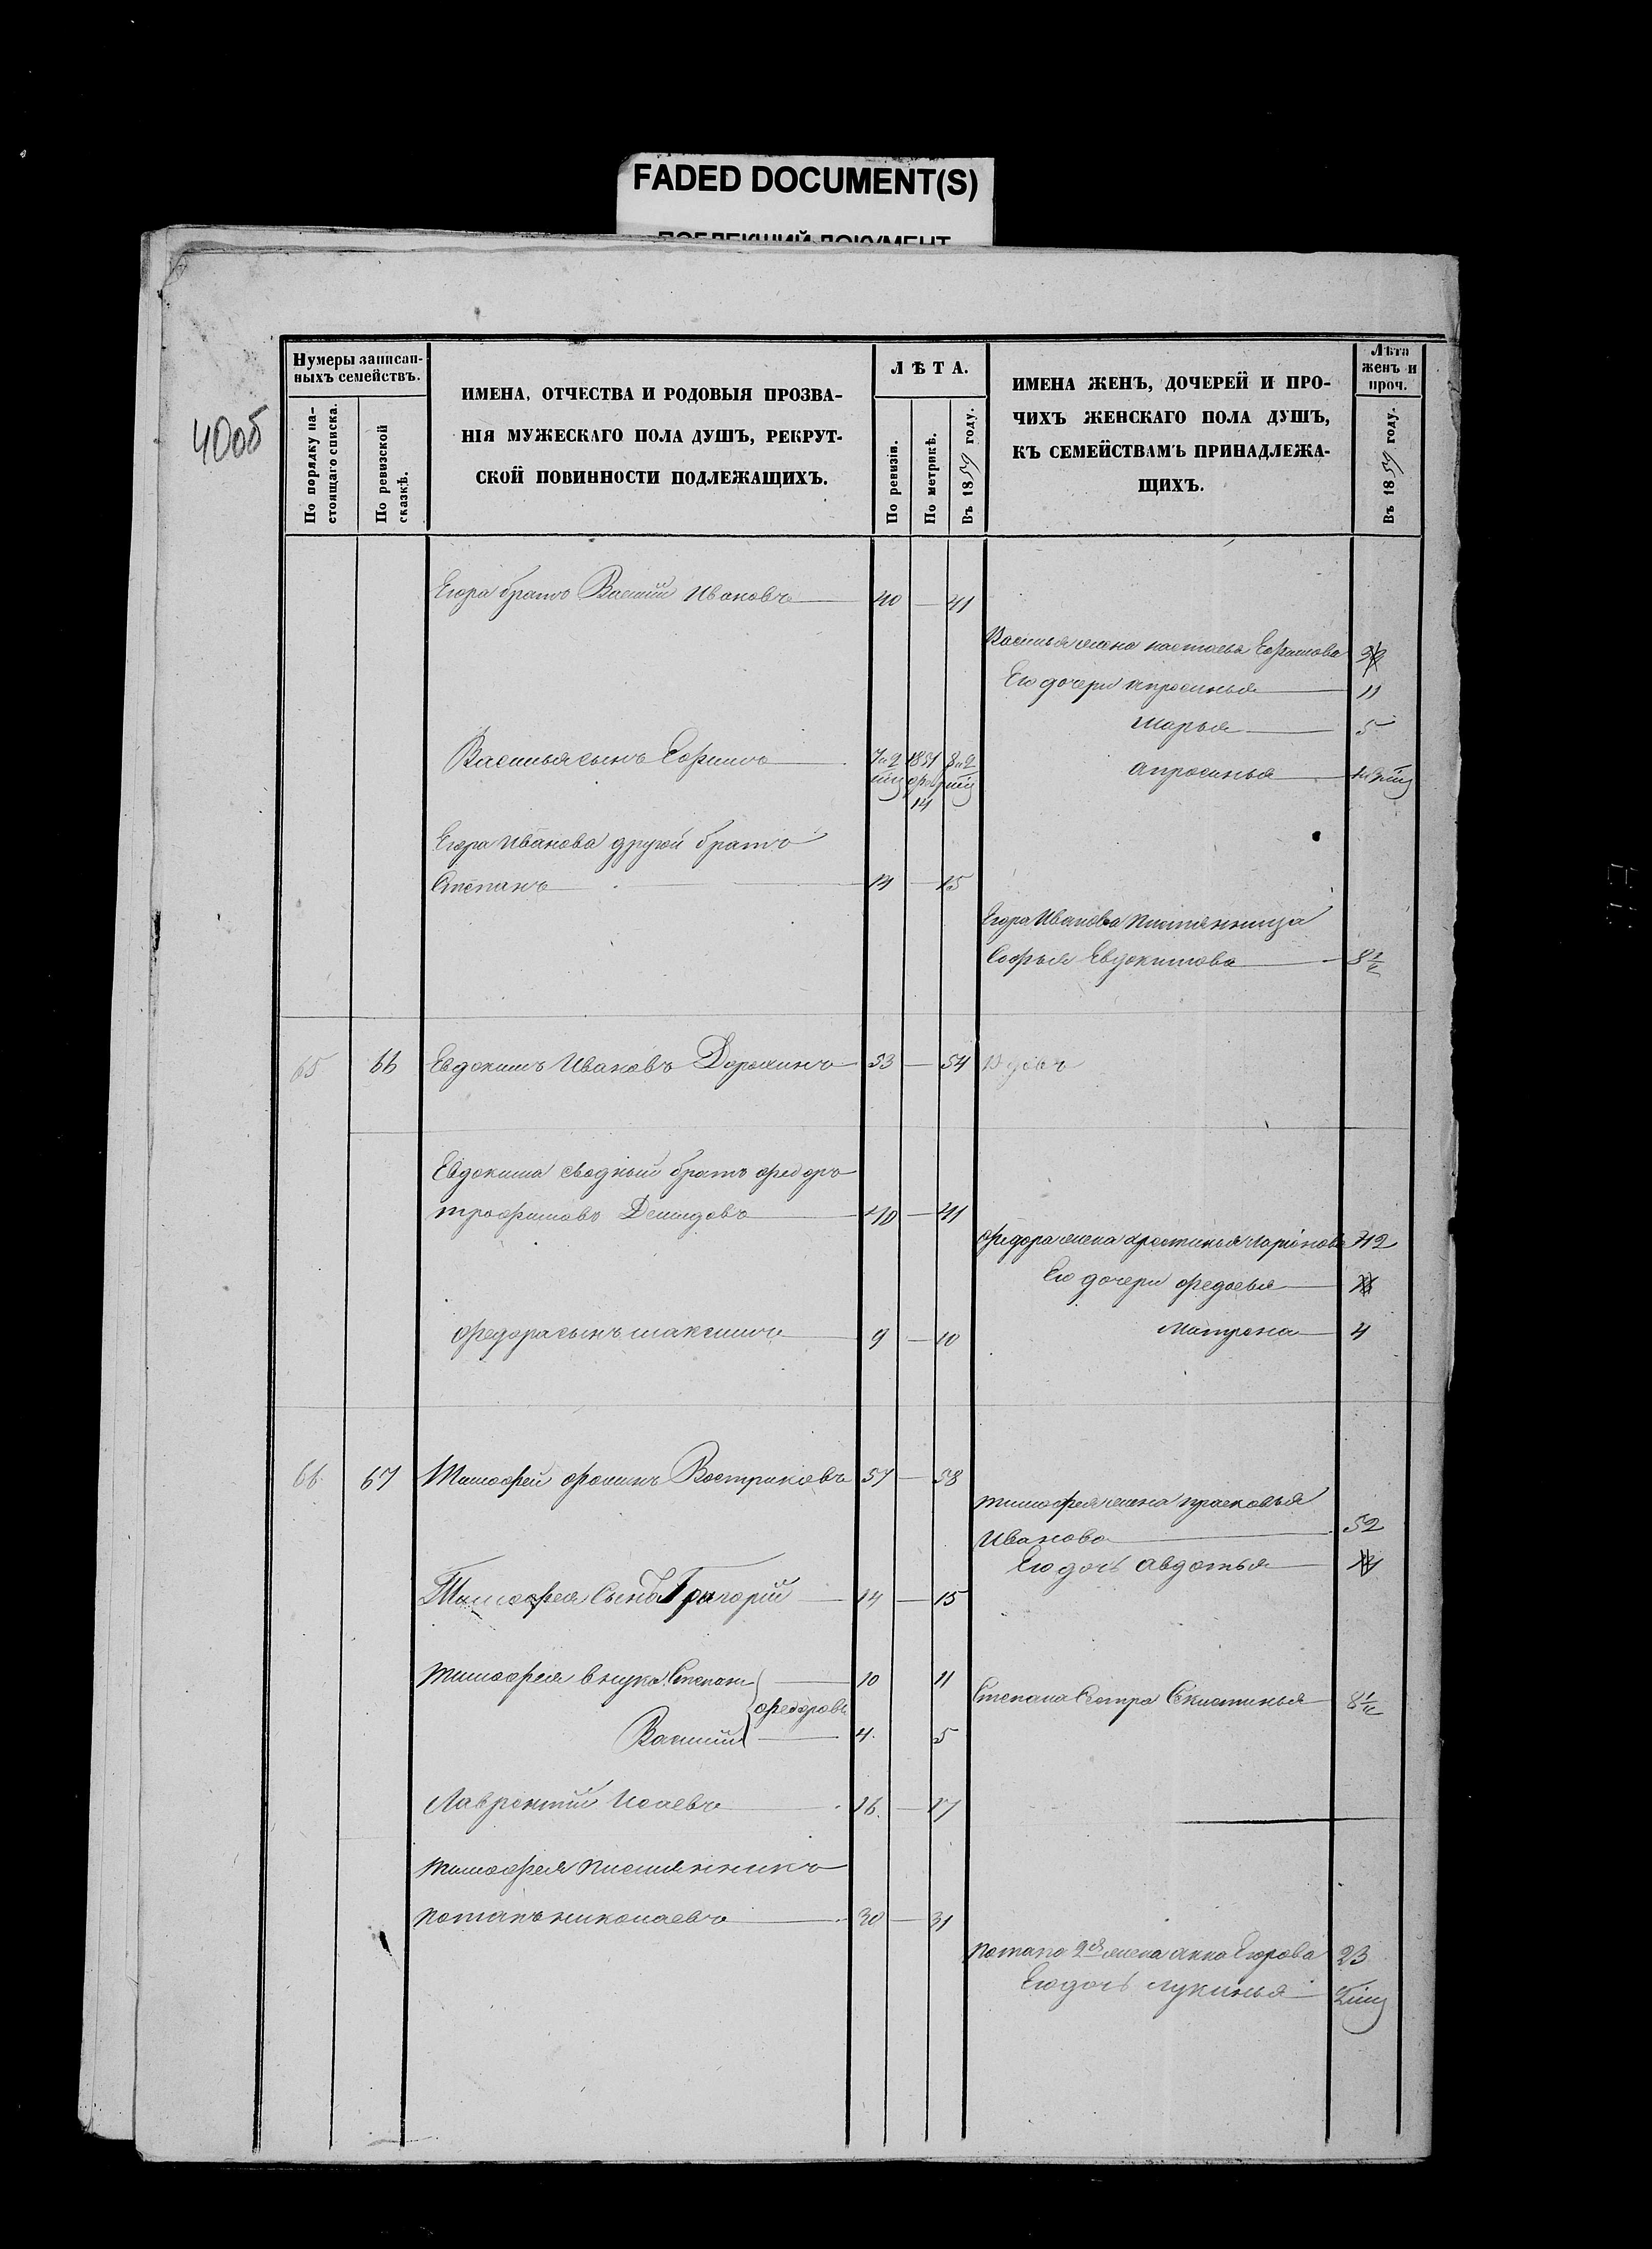 FADED DOCUMENT(S)
ПОБЛЕКШИЙ ДОКУМЕНТ
40об
Нумеры записан-
ныхъ семействъ.
По порядку на-
стоящаго списка.
По ревизской
сказкѣ.
ИМЕНА, ОТЧЕСТВА И РОДОВЫЯ ПРОЗВА-
НІЯ МУЖЕСКАГО ПОЛА ДУШЪ, РЕКРУТ-
СКОЙ ПОВИННОСТИ ПОДЛЕЖАЩИХЪ.
ЛѢТА.
По ревизіи.
По метрикѣ.
Въ 1859 году.
ИМЕНА ЖЕНЪ, ДОЧЕРЕЙ И ПРО-
ЧИХЪ ЖЕНСКАГО ПОЛА ДУШЪ,
КЪ СЕМЕЙСТВАМЪ ПРИНАДЛЕЖА-
ЩИХЪ.
Лѣта
женъ и
проч.
Въ 1859 году.
Егора братъ Василій Ивановъ 40 — 41
Василья жена настасья Ефимова
Его дочери Апросинья 11
Марья 5
Василья сынъ Ефимъ 7 и 2 1851 8 и 2
мц фев мц
14
апросинья
Егора Иванова другой братъ
Степанъ 14 — 15
Егора Иванова племянница
Софья Евдокимова 8½
65 66 Евдокимъ Ивановъ Дорохинъ 53 — 54 Вдовъ
Евдокима сводный братъ федоръ
трофимовъ Демидовъ 40 — 41
федора жена христинья Ларіонова 42
Его дочери федосья
федора сынъ максимъ 9 — 10
Матрона 4
66 67 Тимофей фоминъ Востриковъ 57 — 58
тимофея жена прасковья
Иванова 52
Его дочь авдотья
Тимофея Сынъ Григорій 14 — 15
тимофея внуки Степанъ 10 11
федоровы
Василій 4. 5
Степана Сестра Секлетинья 8½
Лаврентій Исаевъ 16. — 17
тимофея племянникъ
потапъ николаевъ 30 — 31
потапа 2я жена анна Егорова 23
Его дочь лукинья